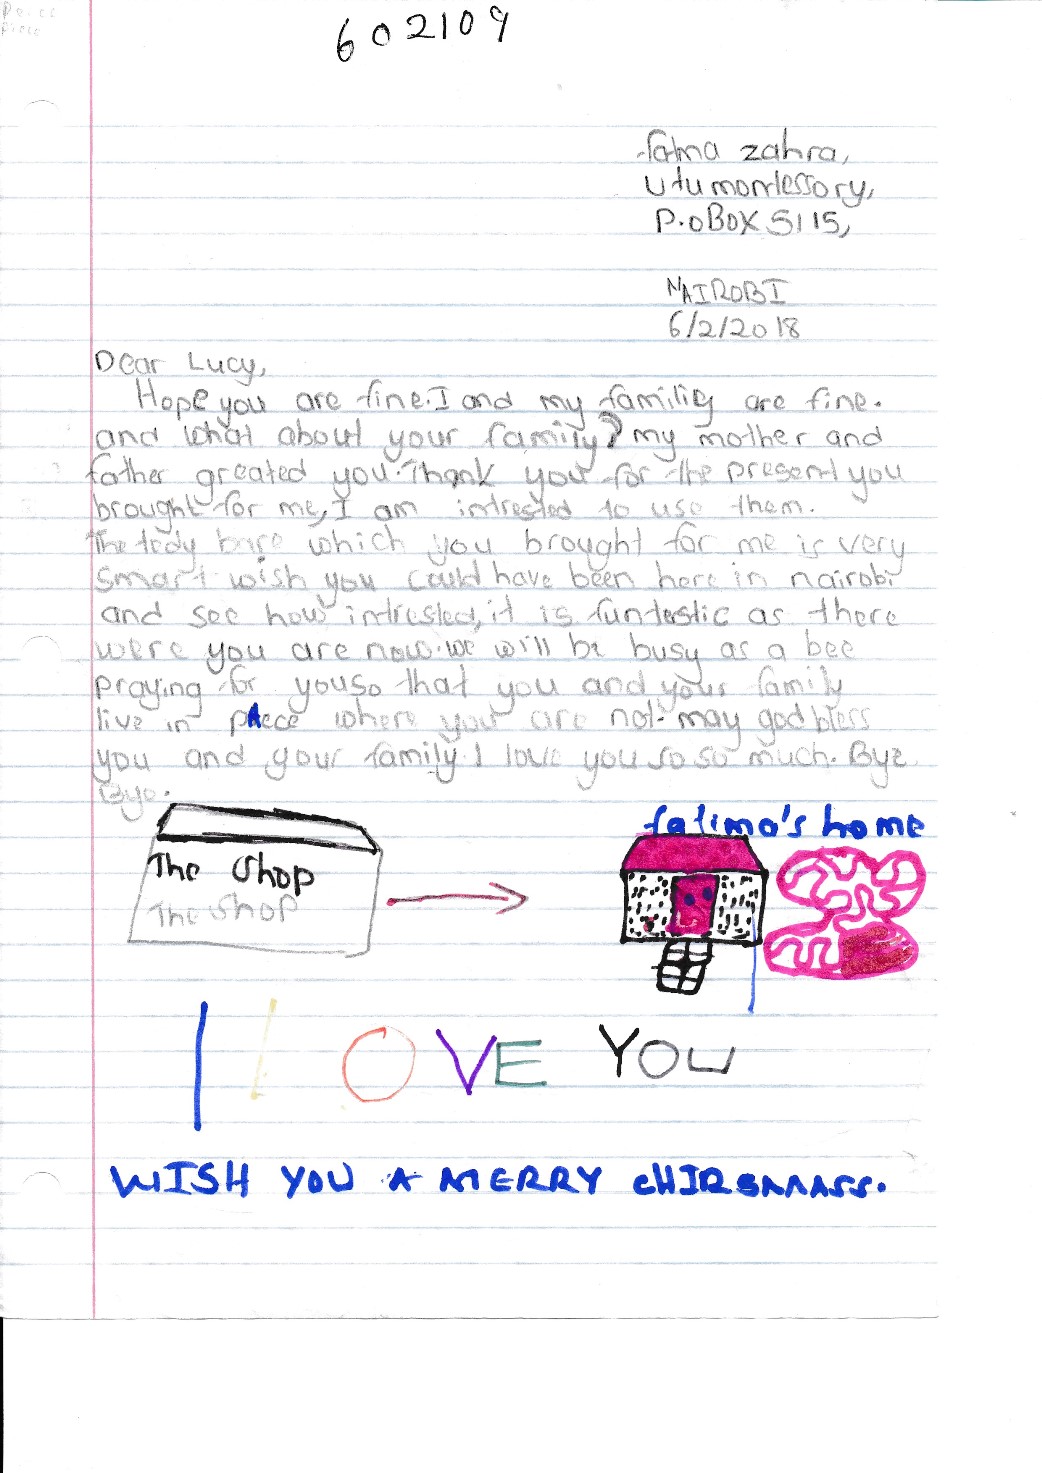 602109
fatma zahra,
utu montessory,
P.o BOX 5115,
NAIROBI
6/2/2018
Dear Lucy,
Hope you are fine. I and my familiy are fine.
and what about your family? my mother and
father greated you. Thank you for the present you
brought for me, I am intrested to use them.
The tedy bare which you brought for me is very
smart wish you could have been here in nairobi
and see how intrested, it is funtestic as there
were you are now. we will be busy as a bee
praying for you so that you and your family
live in peace where you are not. may god bless
you and your family. I love you so so much. Bye
Bye.
fatima's home
The Shop
The Shop
I LOVE YOU
WISH YOU A MERRY CHIRSMASS.